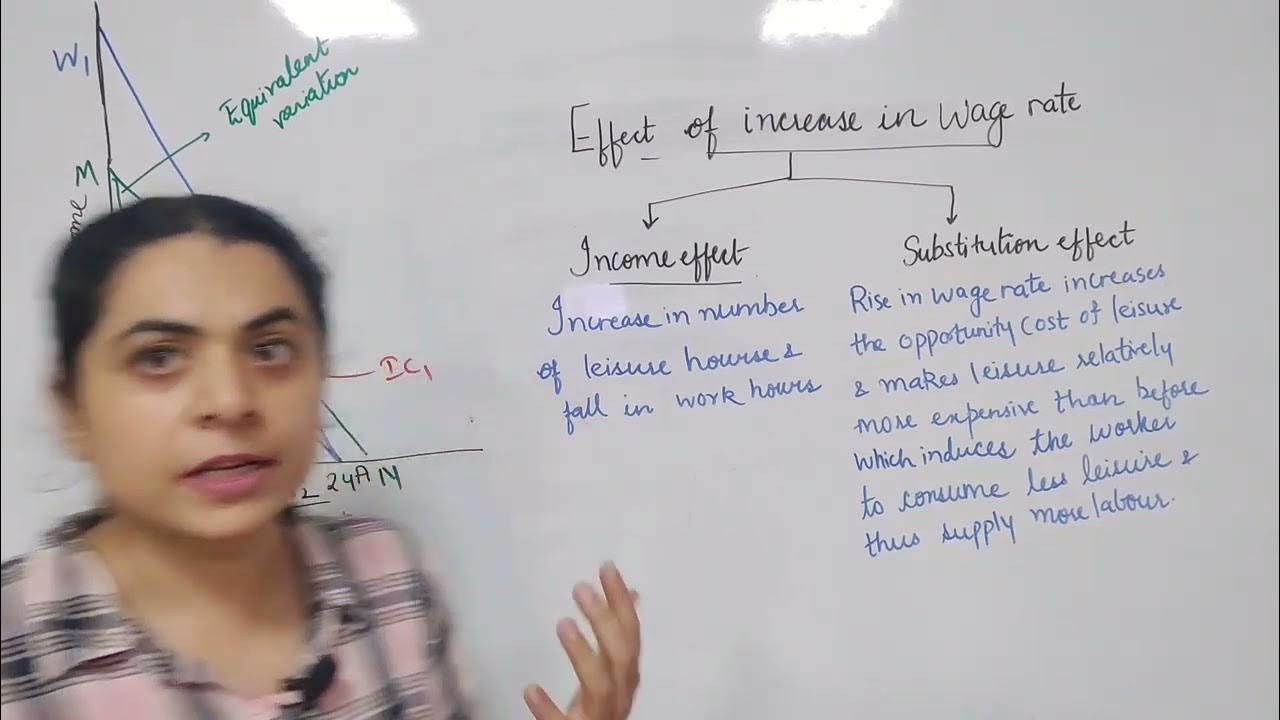 W1
Equivalent
variation
M
IC1
24A N
Effect of increase in Wage rate
Income effect
Increase in number
of leisure hourse &
fall in work hours
Substitution effect
Rise in wage rate increases
the opportunity cost of leisure
& makes leisure relatively
more expensive than before
which induces the worker
to consume less leisure &
thus supply more labour.